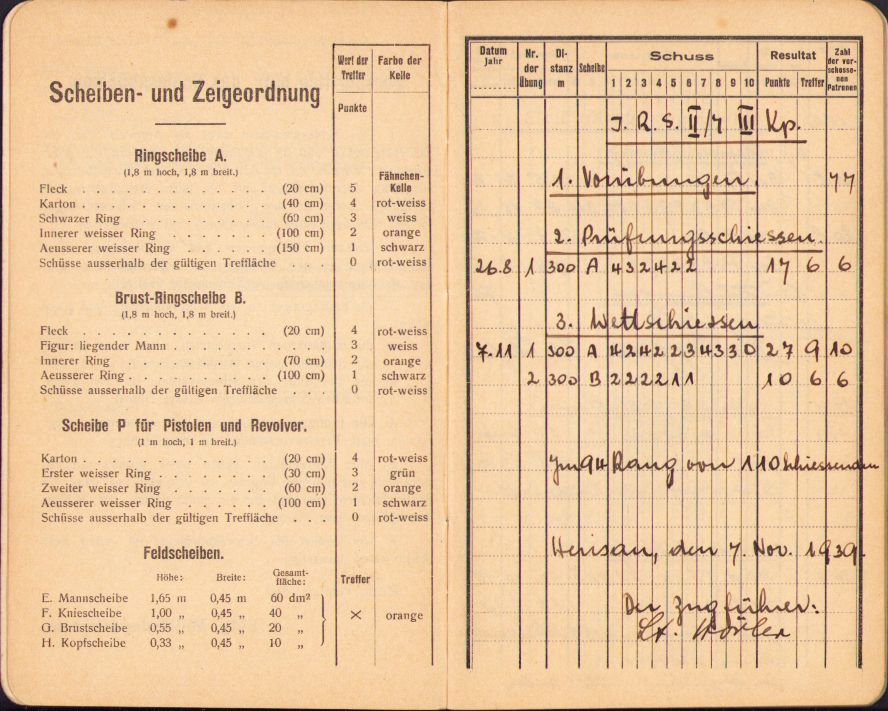 Scheiben- und Zeigeordnung
Wert der Treffer
Farbe der Kelle
Punkte
Ringscheibe A.
(1,8 m hoch, 1,8 m breit.)
Fähnchen-Kelle
Fleck . . . . . . . . . . . . . (20 cm) 5
Karton . . . . . . . . . . . . . (40 cm) 4 rot-weiss
Schwazer Ring . . . . . . . . . (60 cm) 3 weiss
Innerer weisser Ring . . . . . . (100 cm) 2 orange
Aeusserer weisser Ring . . . . . (150 cm) 1 schwarz
Schüsse ausserhalb der gültigen Treffläche . . . 0 rot-weiss
Brust-Ringscheibe B.
(1,8 m hoch, 1,8 m breit.)
Fleck . . . . . . . . . . . . . (20 cm) 4 rot-weiss
Figur: liegender Mann . . . . . . . . . . 3 weiss
Innerer Ring . . . . . . . . . . (70 cm) 2 orange
Aeusserer Ring . . . . . . . . . (100 cm) 1 schwarz
Schüsse ausserhalb der gültigen Treffläche . . . 0 rot-weiss
Scheibe P für Pistolen und Revolver.
(1 m hoch, 1 m breit.)
Karton . . . . . . . . . . . . . (20 cm) 4 rot-weiss
Erster weisser Ring . . . . . . . (30 cm) 3 grün
Zweiter weisser Ring . . . . . . (60 cm) 2 orange
Aeusserer weisser Ring . . . . . (100 cm) 1 schwarz
Schüsse ausserhalb der gültigen Treffläche . . . 0 rot-weiss
Feldscheiben.
Höhe: Breite: Gesamt-fläche: Treffer
E. Mannscheibe 1,65 m 0,45 m 60 dm²
F. Kniescheibe 1,00 „ 0,45 „ 40 „ × orange
G. Brustscheibe 0,55 „ 0,45 „ 20 „
H. Kopfscheibe 0,33 „ 0,45 „ 10 „
Datum Jahr
Nr. der Übung
Di-stanz m
Scheibe
Schuss
1 2 3 4 5 6 7 8 9 10
Resultat
Punkte Treffer
Zahl der ver-schosse-nen Patronen
J. R. S. II/7 III Kp.
1. Vorübungen. 77
2. Prüfungsschiessen.
26.8 1 300 A 4 3 2 4 2 2 17 6 6
3. Wettschiessen
7.11 1 300 A 4 2 4 2 2 3 4 3 3 0 27 9 10
2 300 B 2 2 2 2 1 1 10 6 6
Im 94 Rang von 110 Schiessenden
Herisau, den 7. Nov. 1939.
Der Zugführer:
Lt.